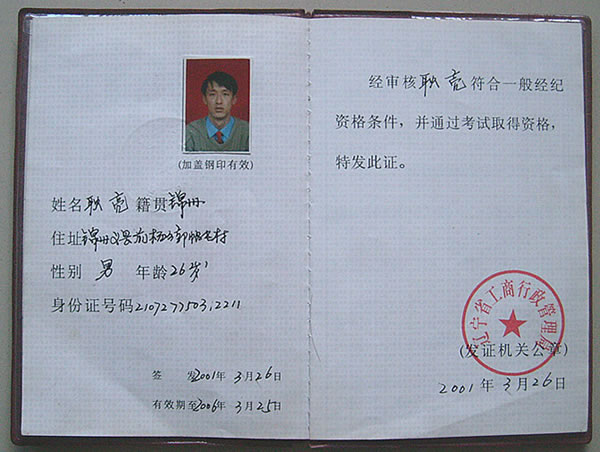 (加盖钢印有效)
姓名耿亮 籍贯锦州
住址锦州义县前杨乡郭
性别 男 年龄26岁
身份证号码210727750312211
签 发2001年3月26日
有效期至2006年3月25日
经审核耿亮符合一般经纪
资格条件，并通过考试取得资格，
特发此证。
辽宁省工商行政管理局
(发证机关公章)
2001年3月26日